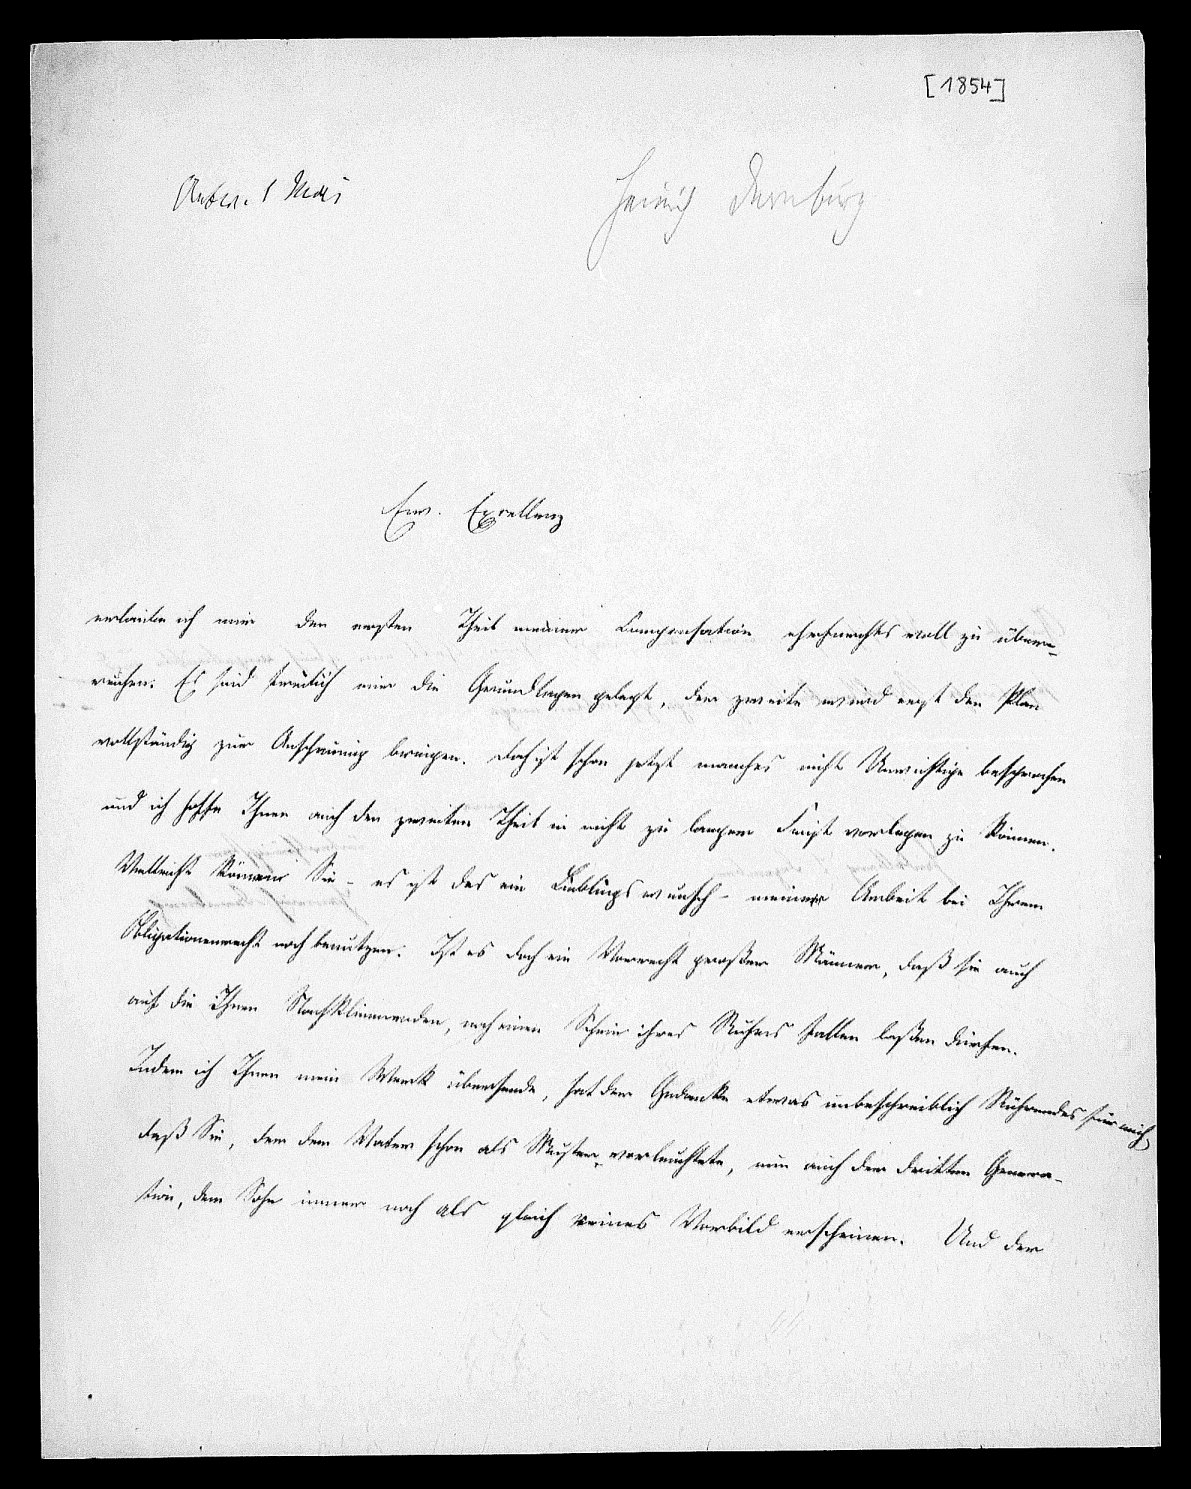 [1854]
Antw. 1 Mai
Heinrich Dernburg
Ew. Excellenz
erlaube ich mir den ersten Theil meiner Compensation ehrfurchtsvoll zu über-
reichen. Es sind freilich nur die Grundlagen gelegt, der zweite wird erst den Plan
vollständig zur Anschauung bringen. Doch ist schon jetzt manches nicht Unwichtige besprochen
und ich hoffe Ihnen auch den zweiten Theil in nicht zu langer Frist vorlegen zu können.
Vielleicht können Sie - es ist das ein Lieblingswunsch - meine Arbeit bei Ihrem
Obligationenrecht noch benutzen. Ist es doch ein Vorrecht großer Männer, daß sie auch
auf die Ihnen Nachklimmenden, noch einen Schein ihres Ruhms fallen laßen dürfen.
Indem ich Ihnen mein Werk übersende, hat der Gedanke etwas unbeschreiblich Rührendes für mich,
daß Sie, der dem Vater schon als Muster vorleuchtete, nun auch der dritten Genera-
tion, dem Sohn immer noch als gleich reines Vorbild erscheinen. Und der